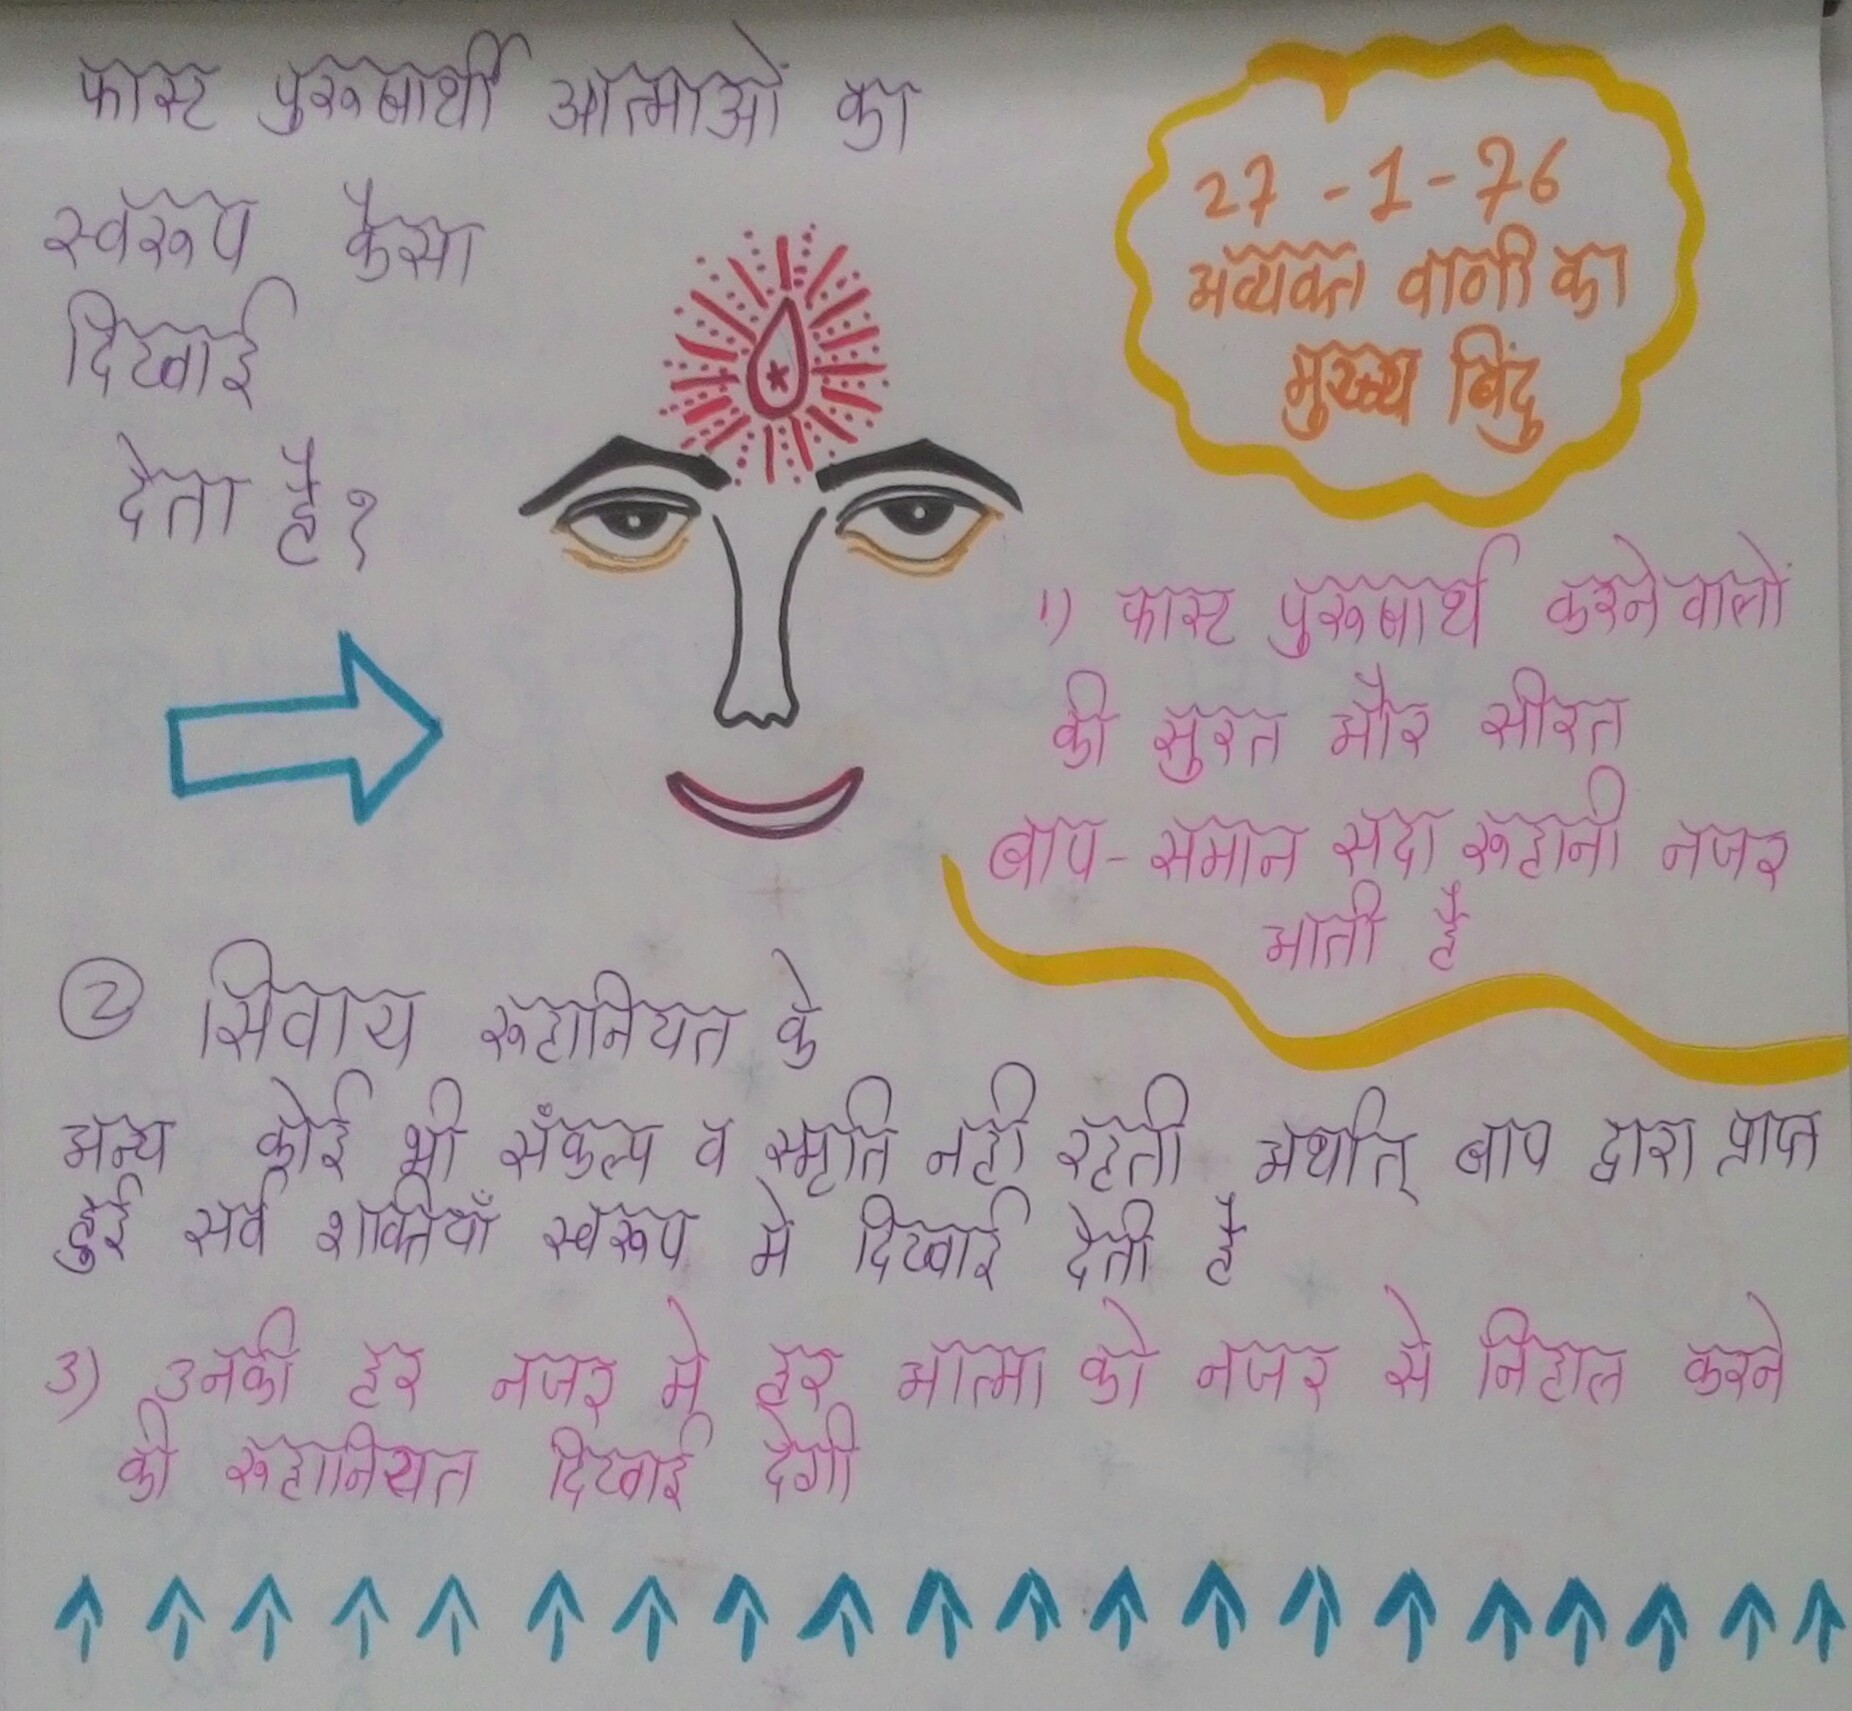 फास्ट पुरूषार्थी आत्माओं का
स्वरूप कैसा
दिखाई
देता है?
27-1-76
अव्यक्त वाणी का
मुख्य बिंदु
1) फास्ट पुरूषार्थ करनेवालों
की सुरत और सीरत
बाप-समान सदा रूहानी नजर
आती है
② सिवाय रूहानियत के
अन्य कोई भी संकल्प व स्मृति नही रहती अर्थात् बाप द्वारा प्राप्त
हुई सर्व शक्तियाँ स्वरूप मे दिखाई देती है
3) उनकी हर नजर मे हर आत्मा को नजर से निहाल करने
की रूहानियत दिखाई देगी